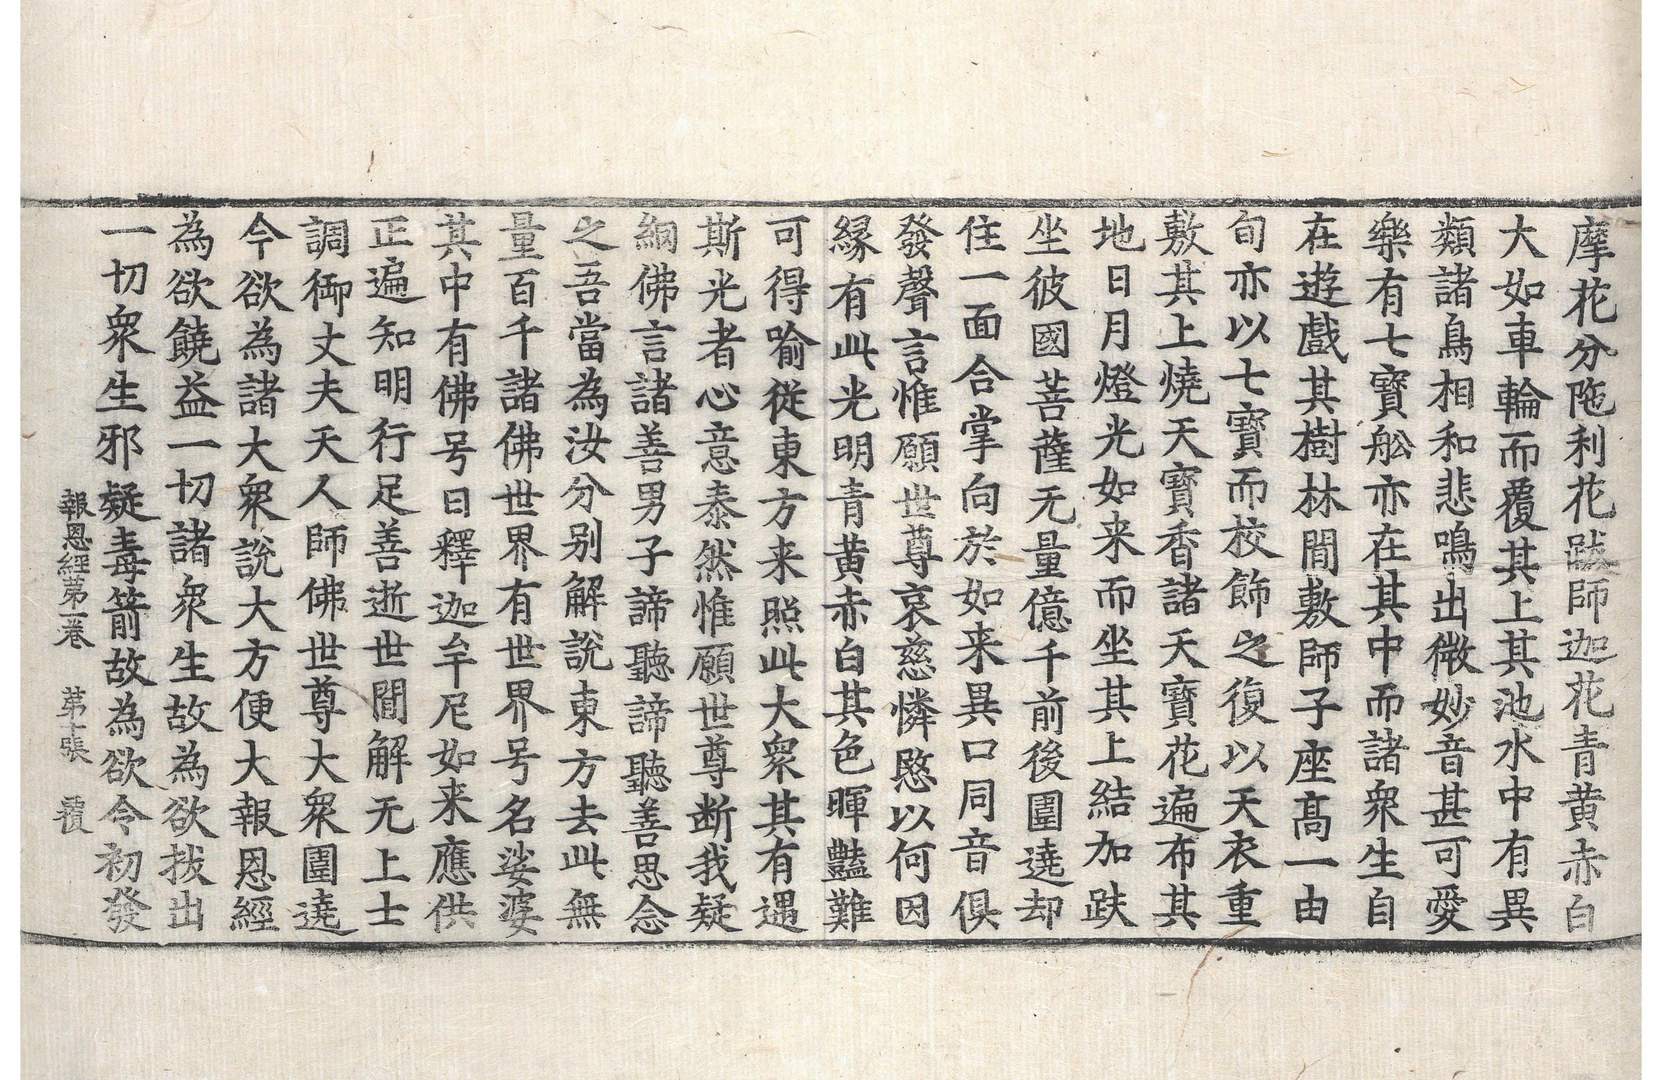 摩花分陁利花跋師迦花青黄赤白
大如車輪而覆其上其池水中有異
類諸鳥相和悲鳴出微妙音甚可愛
樂有七寶舩亦在其中而諸衆生自
在遊戲其樹林間敷師子座高一由
旬亦以七寶而校飾之復以天衣重
敷其上燒天寶香諸天寶花遍布其
地日月燈光如来而坐其上結加趺
坐彼國菩薩无量億千前後圍遶却
住一面合掌向於如来異口同音俱
發聲言惟願世尊哀慈憐愍以何因
縁有此光明青黄赤白其色暉豔難
可得喻從東方来照此大衆其有遇
斯光者心意泰然惟願世尊断我疑
網佛言諸善男子諦聽諦聽善思念
之吾當為汝分别解說東方去此無
量百千諸佛世界有世界号名娑婆
其中有佛号曰釋迦牟尼如来應供
正遍知明行足善逝世間解无上士
調御丈夫天人師佛世尊大衆圍遶
今欲為諸大衆說大方便大報恩經
為欲饒益一切諸衆生故為欲拔出
一切衆生邪疑毒箭故為欲令初發
報恩經第一卷 第十張 覆